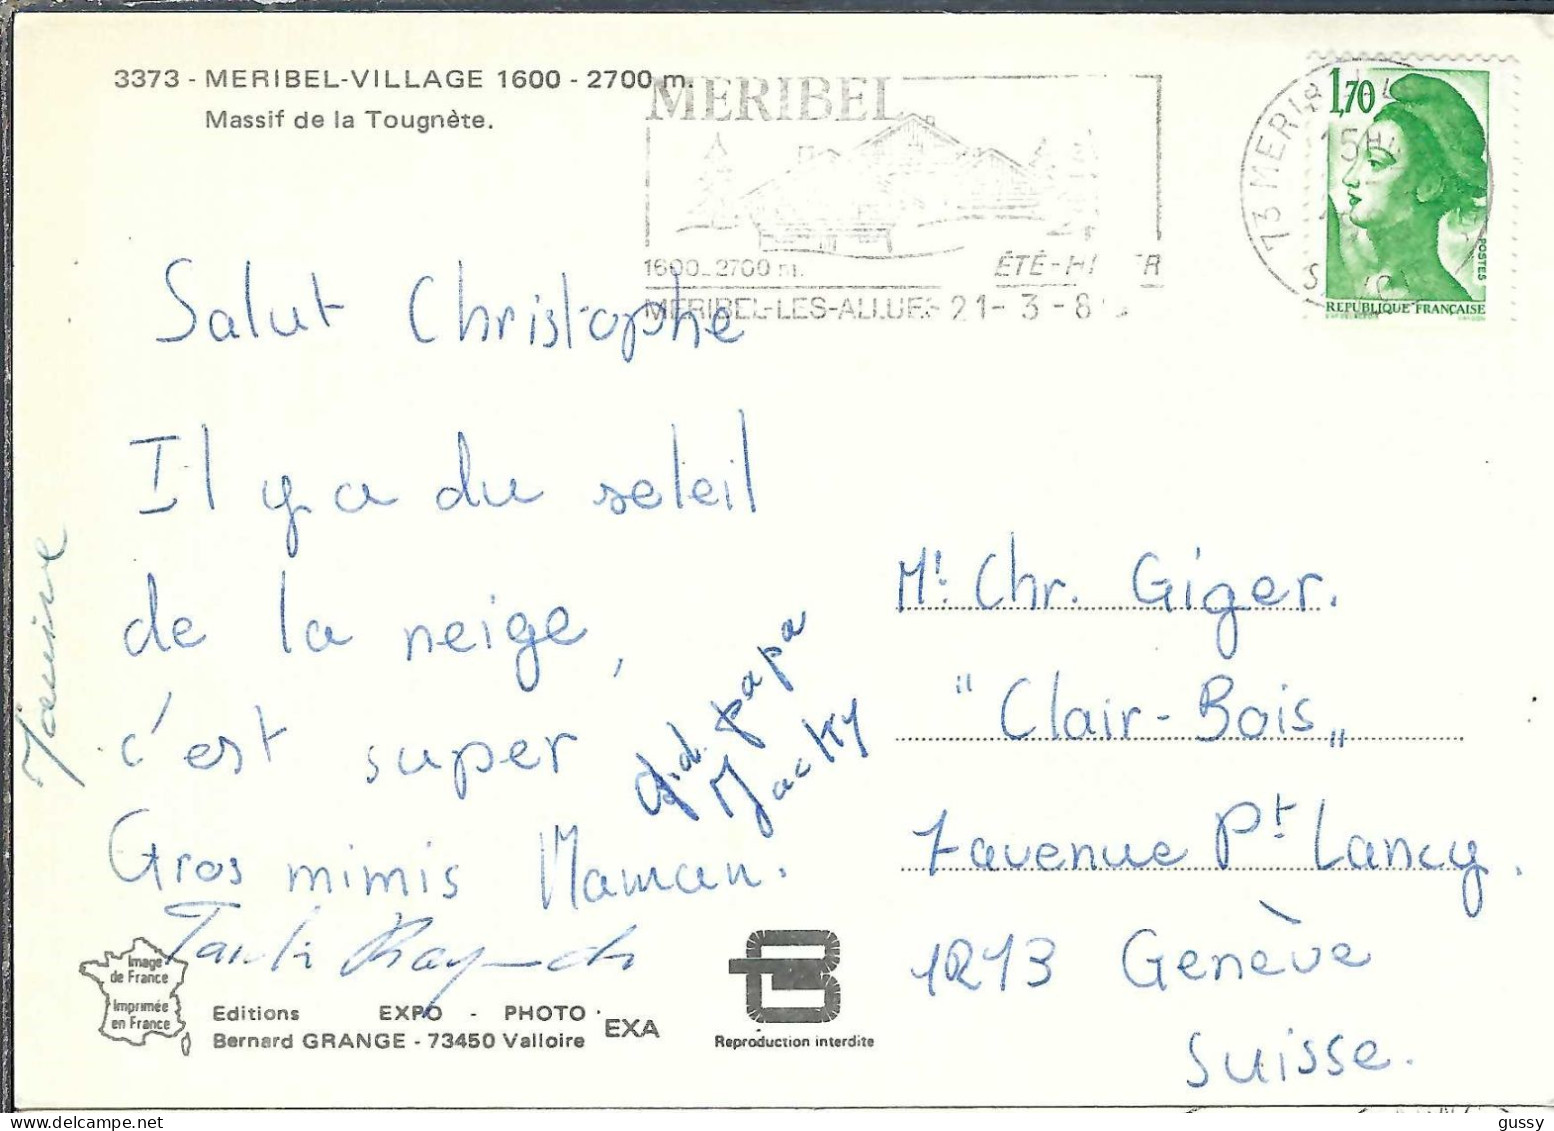 3373 - MERIBEL-VILLAGE 1600 - 2700 m.
Massif de la Tougnète.
MERIBEL
1600-2700 m.
ÉTÉ-H
MERIBEL-LES-ALLUES 21- 3 -8
73 MERIB
15H
1,70
POSTES
REPUBLIQUE FRANÇAISE
Salut Christophe
Il y a du soleil
de la neige,
c'est super
Gros mimis Maman.
papa
Jacky
Janine
Mr. Chr. Giger.
"Clair-Bois"
7 avenue Pt Lancy.
1213 Genève
Suisse.
Image
de France
Imprimée
en France
Editions EXPO - PHOTO
Bernard GRANGE - 73450 Valloire
EXA
Reproduction interdite
gussy